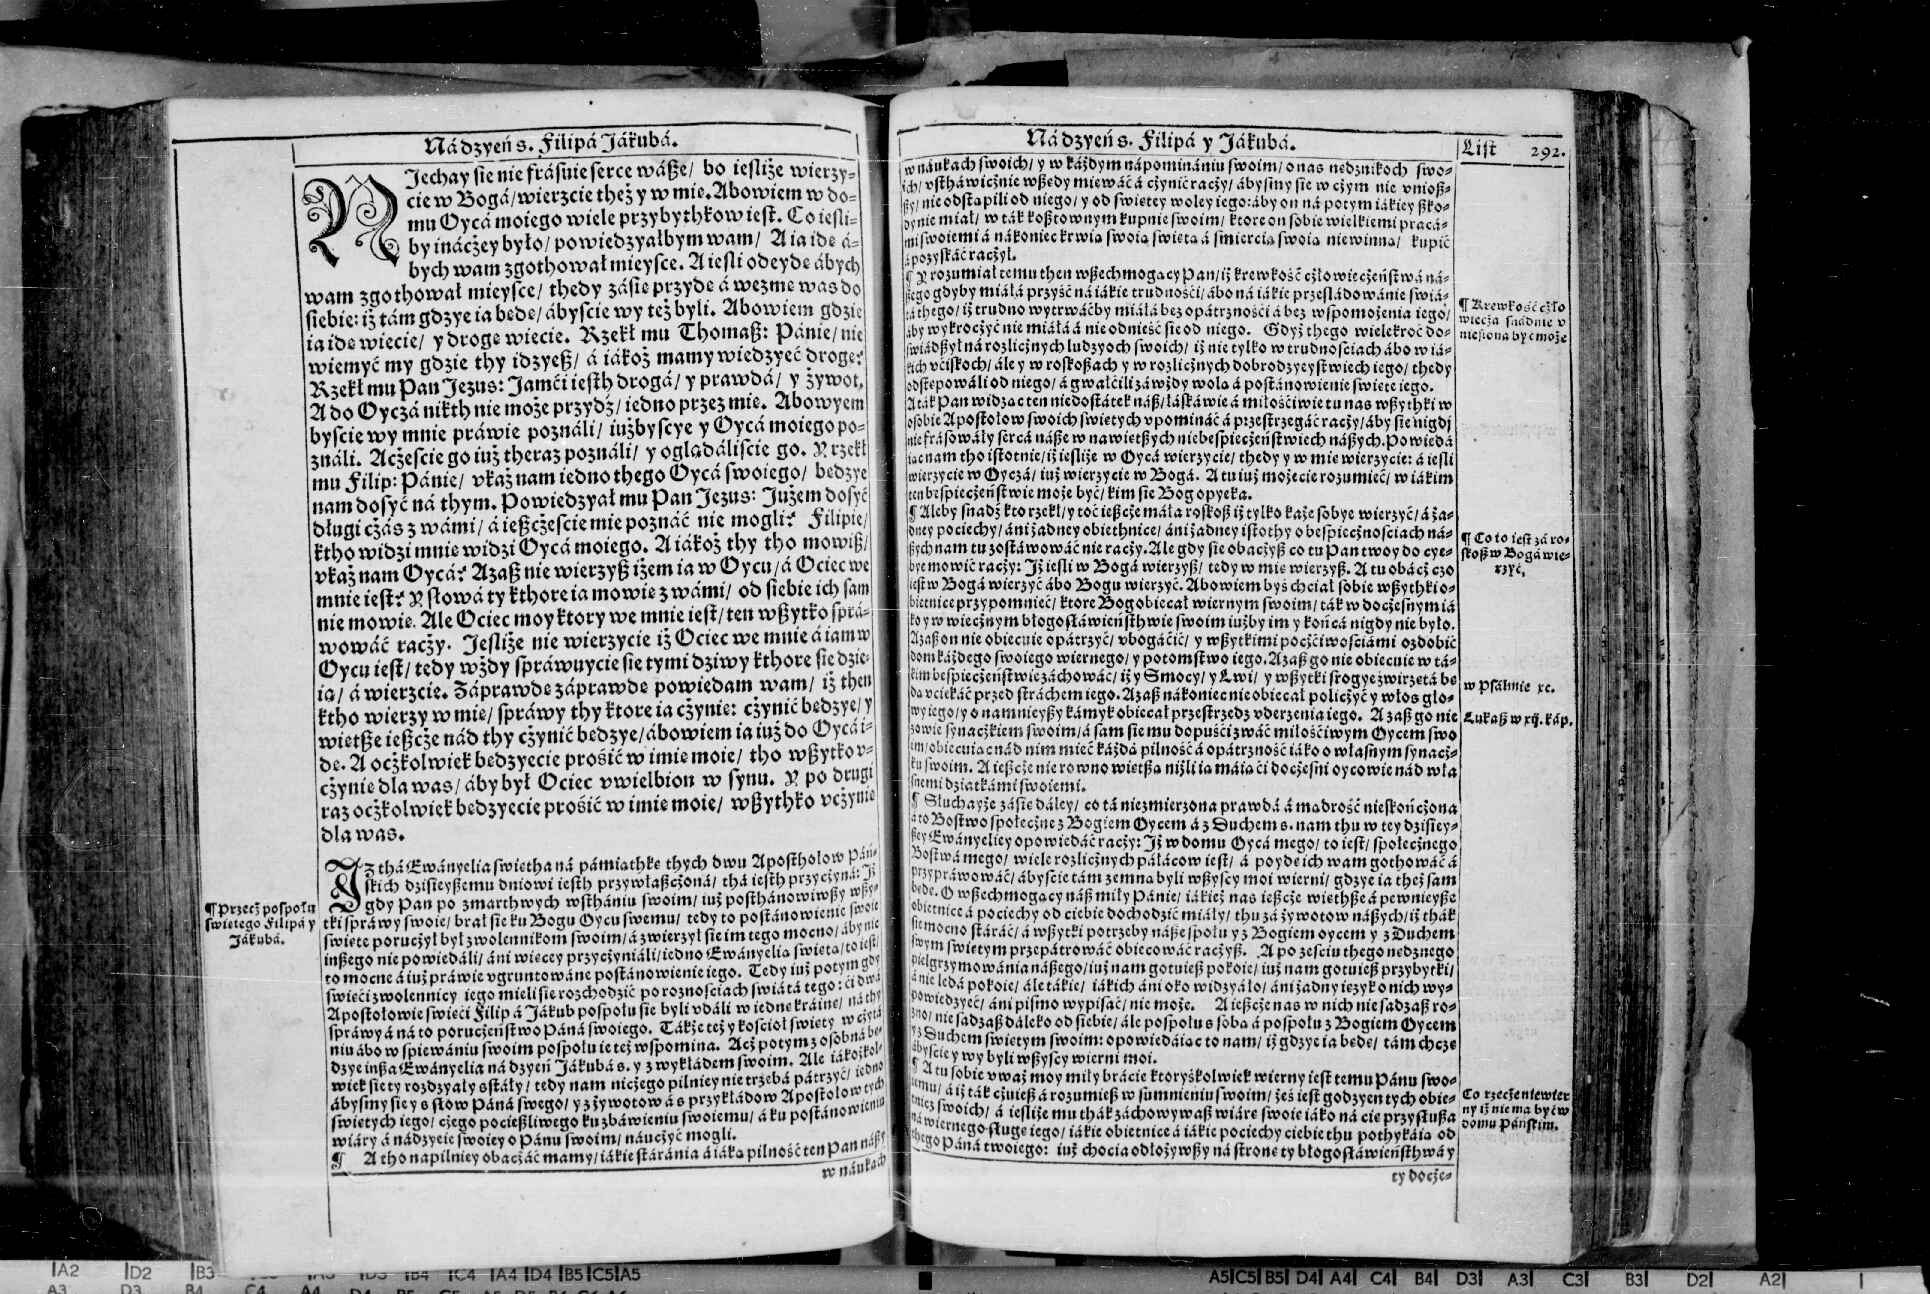 Ná dzyeń s. Filipá Jákubá.
NJechay sie nie frásuie serce wáße/ bo iesliże wierzy-
cie w Bogá/ wierzcie też y w mie. Abowiem w do-
mu Oycá moiego wiele przybythkow iest. Co iesli-
by ináczey było/ powiedzyałbym wam/ A ia ide á-
bych wam zgothował mieysce. A iesli odeyde ábych
wam zgothował mieysce/ thedy zásie przyde á wezme was do
siebie: iż tám gdzye ia bede/ ábyscie wy też byli. Abowiem gdzie
ia ide wiecie/ y droge wiecie. Rzekł mu Thomaß: Pánie/ nie
wiemyć my gdzie thy idzyeß/ á iákoż mamy wiedzyeć droge?
Rzekł mu Pan Jezus: Jamći iesth drogá/ y prawdá/ y żywot,
A do Oyczá nikth nie może przydź/ iedno przez mie. Abowyem
byscie wy mnie práwie poználi/ iużbyscye y Oycá moiego po-
ználi. Aczescie go iuż theraz poználi/ y oglądáliscie go. Y rzekł
mu Filip: Pánie/ vkaż nam iedno thego Oycá swoiego/ bedzye
nam dosyć ná thym. Powiedzyał mu Pan Jezus: Jużem dosyć
długi czás z wámi/ á ießczescie mie poznáć nie mogli? Filipie/
ktho widzi mnie widzi Oycá moiego. A iákoż thy tho mowiß/
vkaż nam Oycá? Azaß nie wierzyß iżem ia w Oycu/ á Ociec we
mnie iest? Y słowá ty kthore ia mowie z wámi/ od siebie ich sam
nie mowie. Ale Ociec moy ktory we mnie iest/ ten wßytko sprá-
wowáć raczy. Jesliże nie wierzycie iż Ociec we mnie á iam w
Oycu iest/ tedy wżdy spráwuycie sie tymi dziwy kthore sie dzie-
ią/ á wierzcie. Záprawde záprawde powiedam wam/ iż then
ktho wierzy w mie/ spráwy thy ktore ia czynie: czynić bedzye/ y
wietße ießcze nád thy czynić bedzye/ ábowiem ia iuż do Oycá i-
de. A oczkolwiek bedzyecie prosić w imie moie/ tho wßytko v-
czynie dla was/ áby był Ociec vwielbion w synu. Y po drugi
raz oczkolwiek bedzyecie prosić w imie moie/ wßythko vczynie
dla was.
IZ thá Ewányelia swietha ná pámiathke thych dwu Apostholow Páń-
skich dzisieyßemu dniowi iesth przywłaßczoná/ thá iesth przyczyná: Iż
gdy Pan po zmarthwych wsthániu swoim/ iuż posthánowiwßy wßy-
tki spráwy swoie/ brał sie ku Bogu Oycu swemu/ tedy to postánowienie swoie
swiete poruczył był zwolennikom swoim/ á zwierzył sie im tego mocno/ áby nic
inßego nie powiedáli/ áni wiecey przyczyniáli/ iedno Ewányelia swietą/ to iest/
to mocne á iuż práwie vgruntowáne postánowienie iego. Tedy iuż potym gdy
swieći zwolennicy iego mieli sie rozchodzić po roznosciach swiátá tego: ći dwá
Apostołowie swieći Filip á Jákub pospołu sie byli vdáli w iedne kráine/ ná thy
spráwy á ná to poruczeństwo Páná swoiego. Tákże też y kościoł swiety w czytá
niu ábo w spiewániu swoim pospołu ie też wspomina. Acz potym z osobná be-
dzye inßa Ewányelia ná dzyeń Jákubá s. y z wykłádem swoim. Ale iákożkol-
wiek sie ty rozdzyały sstáły/ tedy nam niczego pilniey nie trzebá pátrzyć/ iedno
ábysmy sie y s słow Páná swego/ y z żywotow á s przykłádow Apostołow tych
swietych iego/ czego pocießliwego ku zbáwieniu swoiemu/ á ku postánowieniu
wiáry á nádzyeie swoiey o Pánu swoim/ náuczyć mogli.
¶ A tho napilniey obaczáć mamy/ iákie stáránia á iáką pilność ten Pan náßy
w náukach
¶ Przecz pospołu
swietego Filipá y
Jákubá.
Ná dzyeń s. Filipá y Jákubá.
List 292.
w náukach swoich/ y w káżdym nápominániu swoim/ o nas nedznikoch swo-
ich/ vstháwicznie wßedy miewáć á czynić raczy/ ábysmy sie w czym nie vnioß-
ßy/ nie odstąpili od niego/ y od swietey woley iego: áby on ná potym iákiey ßko-
dy nie miał/ w ták koßtownym kupnie swoim/ ktore on sobie wielkiemi pracá-
mi swoiemi á nákoniec krwią swoią swietą á smiercią swoią niewinną/ kupić
á pozyskáć raczył.
¶ Y rozumiał temu then wßechmogący Pan/ iż krewkość człowieczeństwá ná-
ßego gdyby miáłá przyść ná iákie trudnośći/ ábo ná iákie przesládowánie swiá-
tá thego/ iż trudno wytrwáćby miáłá bez opátrznośći á bez wspomożenia iego/
áby wykroczyć nie miáłá á nie odnieść sie od niego. Gdyż thego wielekroć do-
swiádßył ná rozlicznych ludzyoch swoich/ iż nie tylko w trudnosciach ábo w iá-
kich vćiskoch/ ále y w roskoßach y w rozlicznych dobrodzyeystwiech iego/ thedy
odstepowáli od niego/ á gwałćili záwżdy wolą á postánowienie swiete iego.
A ták Pan widząc ten niedostátek náß/ łáskáwie á miłośćiwie tu nas wßythki w
osobie Apostołow swoich swietych vpomináć á przestrzegáć raczy/ áby sie nigdj
nie frásowáły sercá náße w nawietßych niebespieczeństwiech náßych. Powiedá
iąc nam tho istotnie/ iż iesliże w Oycá wierzycie/ thedy y w mie wierzycie: á iesli
wierzycie w Oyczá/ iuż wierzycie w Bogá. A tu iuż możecie rozumieć/ w iákim
ten bespieczeństwie może być/ kim sie Bog opyeka.
¶ Aleby snadź kto rzekł/ y toć ießcze máła roskoß iż tylko każe sobye wierzyć/ á ża-
dney pociechy/ áni żadney obiethnice/ áni żadney istothy o bespiecznosciach ná-
ßych nam tu zostáwowáć nie raczy. Ale gdy sie obaczyß co tu Pan twoy do cye-
bye mowić raczy: Iż iesli w Bogá wierzyß/ tedy w mie wierzyß. A tu obácż czo
iest w Bogá wierzyć ábo Bogu wierzyć. Abowiem byś chciał sobie wßythki o-
bietnice przypomnieć/ ktore Bog obiecał wiernym swoim/ ták w doczesnym iá
ko y w wiecznym błogosłáwieństhwie swoim iużby im y końcá nigdy nie było.
Azaß on nie obiecuie opátrzyć/ vbogáćić/ y wßytkimi poczćiwosciámi ozdobić
dom káżdego swoiego wiernego/ y potomstwo iego. Azaß go nie obiecuie w tá-
kim bespieczeństwie záchowáć/ iż y Smocy/ y Lwi/ y wßytki srogye źwirzetá be
dą vciekáć przed stráchem iego. Azaß nákoniec nie obiecał policzyć y włos gło-
wy iego/ y o namnieyßy kámyk obiecał przestrzedz vderzenia iego. Azaß go nie
zowie synaczkiem swoim/ á sam sie mu dopuśći zwáć miłośćiwym Oycem swo
im/ obiecuiąc nád nim mieć káżdą pilność á opátrzność iáko o własnym synacz-
ku swoim. A ießcze nie rowno wietßą niżli ią máią ći doczesni oycowie nád wła
snemi dziatkámi swoiemi.
¶ Słuchayże zásie dáley/ co tá niezmierzona prawdá á mądrość nieskończona
á to Bostwo społeczne z Bogiem Oycem á z Duchem s. nam thu w tey dzisiey-
ßey Ewányeliey opowiedáć raczy: Iż w domu Oycá mego/ to iest/ społecznego
Bostwá mego/ wiele rozlicznych páłacow iest/ á poyde ich wam gothowáć á
przypráwowáć/ ábyscie tám zemną byli wßyscy moi wierni/ gdzye ia theż sam
bede. O wßechmogący náß miły Pánie/ iákież nas ießcze wiethße á pewnieyße
obietnice á pociechy od ciebie dochodzić miáły/ thu zá żywotow náßych/ iż thák
sie mocno stáráć/ á wßytki potrzeby náße społu y z Bogiem oycem y z Duchem
swym swietym przepátrowáć obiecowáć raczyß. A po ześciu thego nedznego
pielgrzymowánia náßego/ iuż nam gotuieß pokoie/ iuż nam gotuieß przybytki/
á nie ledá pokoie/ ále tákie/ iákich áni oko widzyáło/ áni żadny iezyk o nich wy-
powiedzyeć/ áni pismo wypisáć/ nie może. A ießcze nas w nich nie sadzaß ro-
zno/ nie sadzaß dáleko od siebie/ ále pospołu s sobą á pospołu z Bogiem Oycem
y z Duchem swietym swoim: opowiedáiąc to nam/ iż gdzye ia bede/ tám chcze
ábyscie y wy byli wßyscy wierni moi.
¶ A tu sobie vważ moy miły brácie ktoryśkolwiek wierny iest temu Pánu swo-
iemu/ á iż ták czuieß á rozumieß w sumnieniu swoim/ żeś iest godzyen tych obie-
tnicz swoich/ á iesliże mu thák záchowywaß wiáre swoie iáko ná cie przysłußa
ná wiernego sługe iego/ iákie obietnice á iákie pociechy ciebie thu pothykáią od
thego Páná twoiego: iuż chocia odłożywßy ná strone ty błogosłáwieństhwá y
ty docze-
¶ Krewkość czło
wiecza snádnie v
niesiona być może
¶ Co to iest zá ro-
skoß w Bogá wie-
rzyć.
w Psálmie xc.
Lukaß w xij. káp.
Co rzecże niewier
ny iż nie ma być w
domu Páńskim.